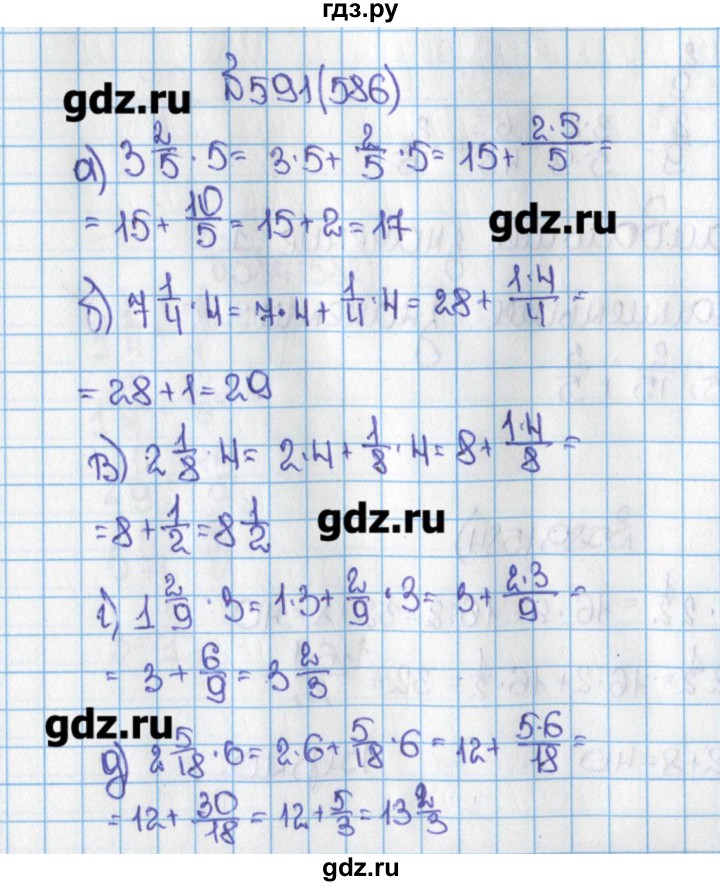 гдз.ру
№591(586)
gdz.ru
а) 3 2/5 · 5 = 3·5 + 2/5 · 5 = 15 + 2·5/5 =
= 15 + 10/5 = 15 + 2 = 17
gdz.ru
б) 7 1/4 · 4 = 7·4 + 1/4 · 4 = 28 + 1·4/4 =
= 28 + 1 = 29
в) 2 1/8 · 4 = 2·4 + 1/8 · 4 = 8 + 1·4/8 =
= 8 + 1/2 = 8 1/2
gdz.ru
г) 1 2/9 · 3 = 1·3 + 2/9 · 3 = 3 + 2·3/9 =
= 3 + 6/9 = 3 2/3
gdz.ru
д) 2 5/18 · 6 = 2·6 + 5/18 · 6 = 12 + 5·6/18 =
= 12 + 30/18 = 12 + 5/3 = 13 2/3
gdz.ru